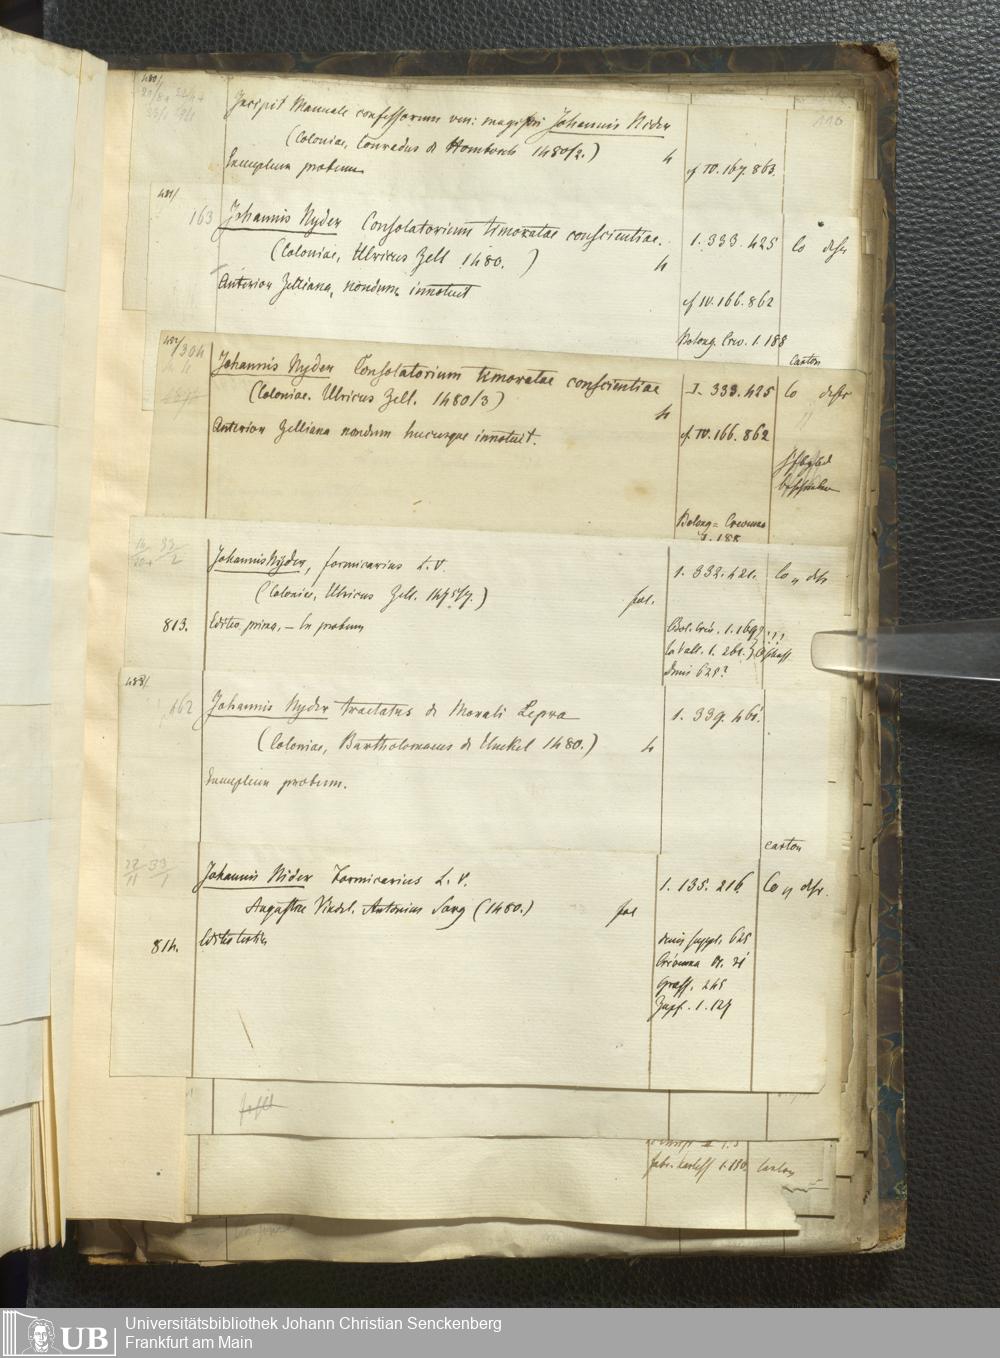 480/
110
Incipit Manuale confessorum ven: magistri Johannis Nider
(Coloniae, Conradus de Homborch 1480/2.) 4
Exemplum probum
cf IV. 167. 863.
481/
163 Johannis Nyder Consolatorium timoratae conscientiae. 1. 333. 425 Co defr
(Coloniae, Ulricus Zell 1480. ) 4
Anterior Zelliana, nondum innotuit
cf IV. 166. 862
Bolong. Crev. 1. 188
carton
482/304
Johannis Nyder Consolatorium timoratae conscientiae I. 333. 425 Co defr
(Coloniae. Ulricus Zell. 1480/3) 4
Anterior Zelliana nondum hucusque innotuit. cf. IV. 166. 862
Bolong= Crevenna
I. 188
33/2
Johannis Nyder, formicarius L. V. 1. 332. 421. Co „ defr
(Coloniae, Ulricus Zell. 1475/7.) fol.
813. Editio prima, – Ex probum
Bol. Crev. 1. 169?
La Vall. 1. 261.
Denis 628?
483/
162 Johannis Nyder tractatus de Morali Lepra 1. 339. 461.
(Coloniae, Bartholomaeus de Unckel 1480.) 4
Exemplum probum.
carton
22/11 33/1
Johannis Nider Formicarius L. V. 1. 135. 216 Co „ defr.
Augustae Vindel. Antonius Sorg (1480.) fol
814. Editio tertia
Denis suppl. 625
Crevenna
Graff. 245
Zapf. 1. 127
1.150. Carton
UB
Universitätsbibliothek Johann Christian Senckenberg
Frankfurt am Main